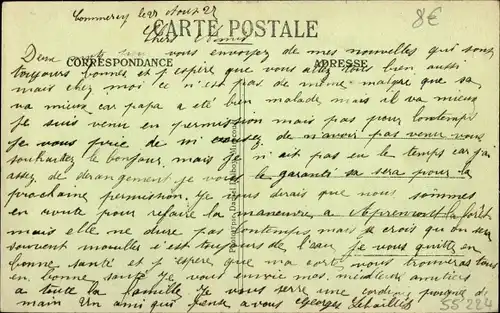 Commercy le 27 Aout 22
8€
CARTE POSTALE
Chers Amis
Deux mots pour vous envoyez de mes nouvelles qui sont
CORRESPONDANCE
ADRESSE
toujours bonnes et j'espère que vous allez tout bien aussi
mais chez moi ce n'est pas de même malgré que sa
va mieux car papa a été bien malade mais il va mieux
je suis venu en permission mais pas pour lontemps
je vous prie de m'excusez de n'avoir pas venu vous
souhaitez le bonjour, mais je n'ait pas eu le temps car j'ai
assez de derangement je vous le garanti sa sera pour la
prochaine permission. Je vous dirais que nous sommes
en route pour refaire la manœuvre a Apremont la forêt
mais elle ne dure pas lontemps mais je crois qu on sera
souvent mouilles s'est toujours de l'eau, je vous quitte en
bonne santé et j'espère que va carte vous trouveras tous
en bonne santé Je vous envoie mes meilleurs amities
a toute la famille Je vous serre une cordiale poignée de
main Un ami qui pense a vous Georges
55224